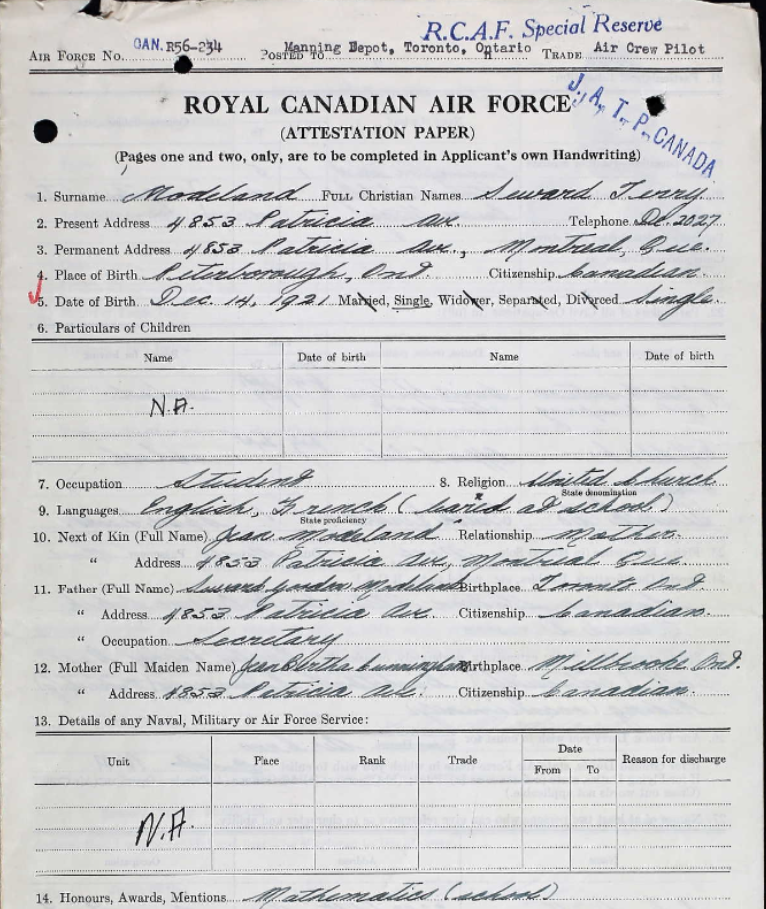 R.C.A.F. Special Reserve
AIR FORCE No. CAN. R56-234 POSTED TO Manning Depot, Toronto, Ontario TRADE Air Crew Pilot
J.A.T.P. CANADA
ROYAL CANADIAN AIR FORCE
(ATTESTATION PAPER)
(Pages one and two, only, are to be completed in Applicant's own Handwriting)
1. Surname Modeland FULL Christian Names Seward Terry
2. Present Address 4853 Patricia Ave Telephone De. 2027
3. Permanent Address 4853 Patricia Ave., Montreal, Que.
4. Place of Birth Peterborough, Ont Citizenship Canadian
5. Date of Birth Dec. 14, 1921 Married, Single, Widower, Separated, Divorced Single
6. Particulars of Children
Name Date of birth Name Date of birth
N.A.
7. Occupation Student 8. Religion United Church
State denomination
9. Languages English, French ( at school)
State proficiency
10. Next of Kin (Full Name) Jean Modeland Relationship Mother
" Address 4853 Patricia Ave, Montreal Que
11. Father (Full Name) Seward Gordon Modeland Birthplace Toronto Ont.
" Address 4853 Patricia Ave Citizenship Canadian
" Occupation Secretary
12. Mother (Full Maiden Name) Jean Bertha Cunningham Birthplace Millbrooke Ont.
" Address 4853 Patricia Ave. Citizenship Canadian
13. Details of any Naval, Military or Air Force Service:
Unit Place Rank Trade Date Reason for discharge
From To
N.A.
14. Honours, Awards, Mentions Mathematics (school)